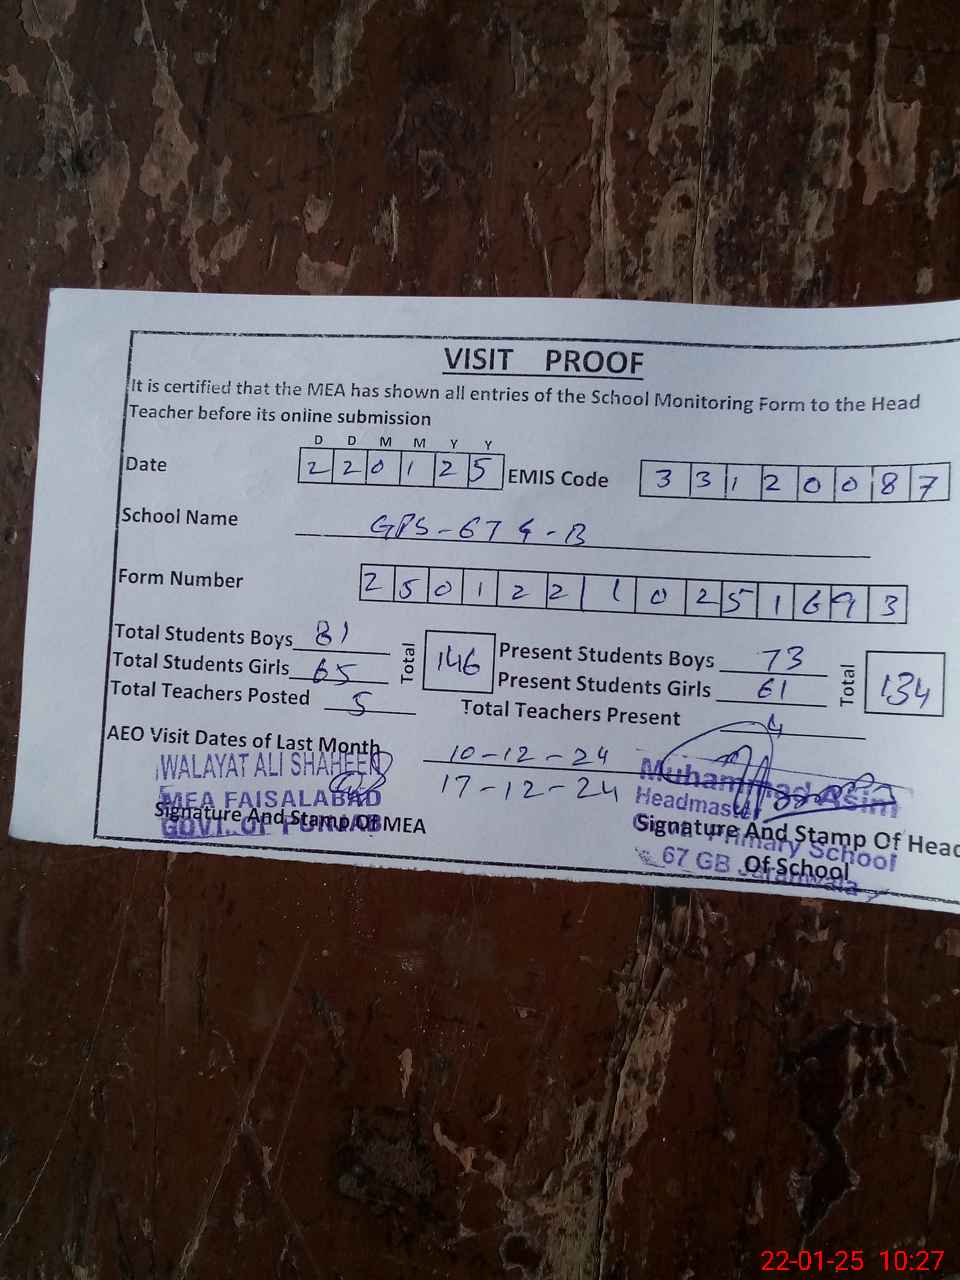 VISIT PROOF
It is certified that the MEA has shown all entries of the School Monitoring Form to the Head
Teacher before its online submission
D D M M Y Y
Date 2 2 0 1 2 5 EMIS Code 3 3 1 2 0 0 8 7
School Name GPS-67 G-B
Form Number 2 5 0 1 2 2 1 0 2 5 1 6 9 3
Total Students Boys 81 Total 146 Present Students Boys 73 Total 134
Total Students Girls 65 Present Students Girls 61
Total Teachers Posted 5 Total Teachers Present 4
AEO Visit Dates of Last Month 10-12-24
17-12-24
WALAYAT ALI SHAHEEN
MEA FAISALABAD
GOVT. OF PUNJAB
Signature And Stamp Of MEA
Muhammad Asim
Headmaster
Primary School
67 GB Jaranwala
Signature And Stamp Of Head
Of School
22-01-25 10:27